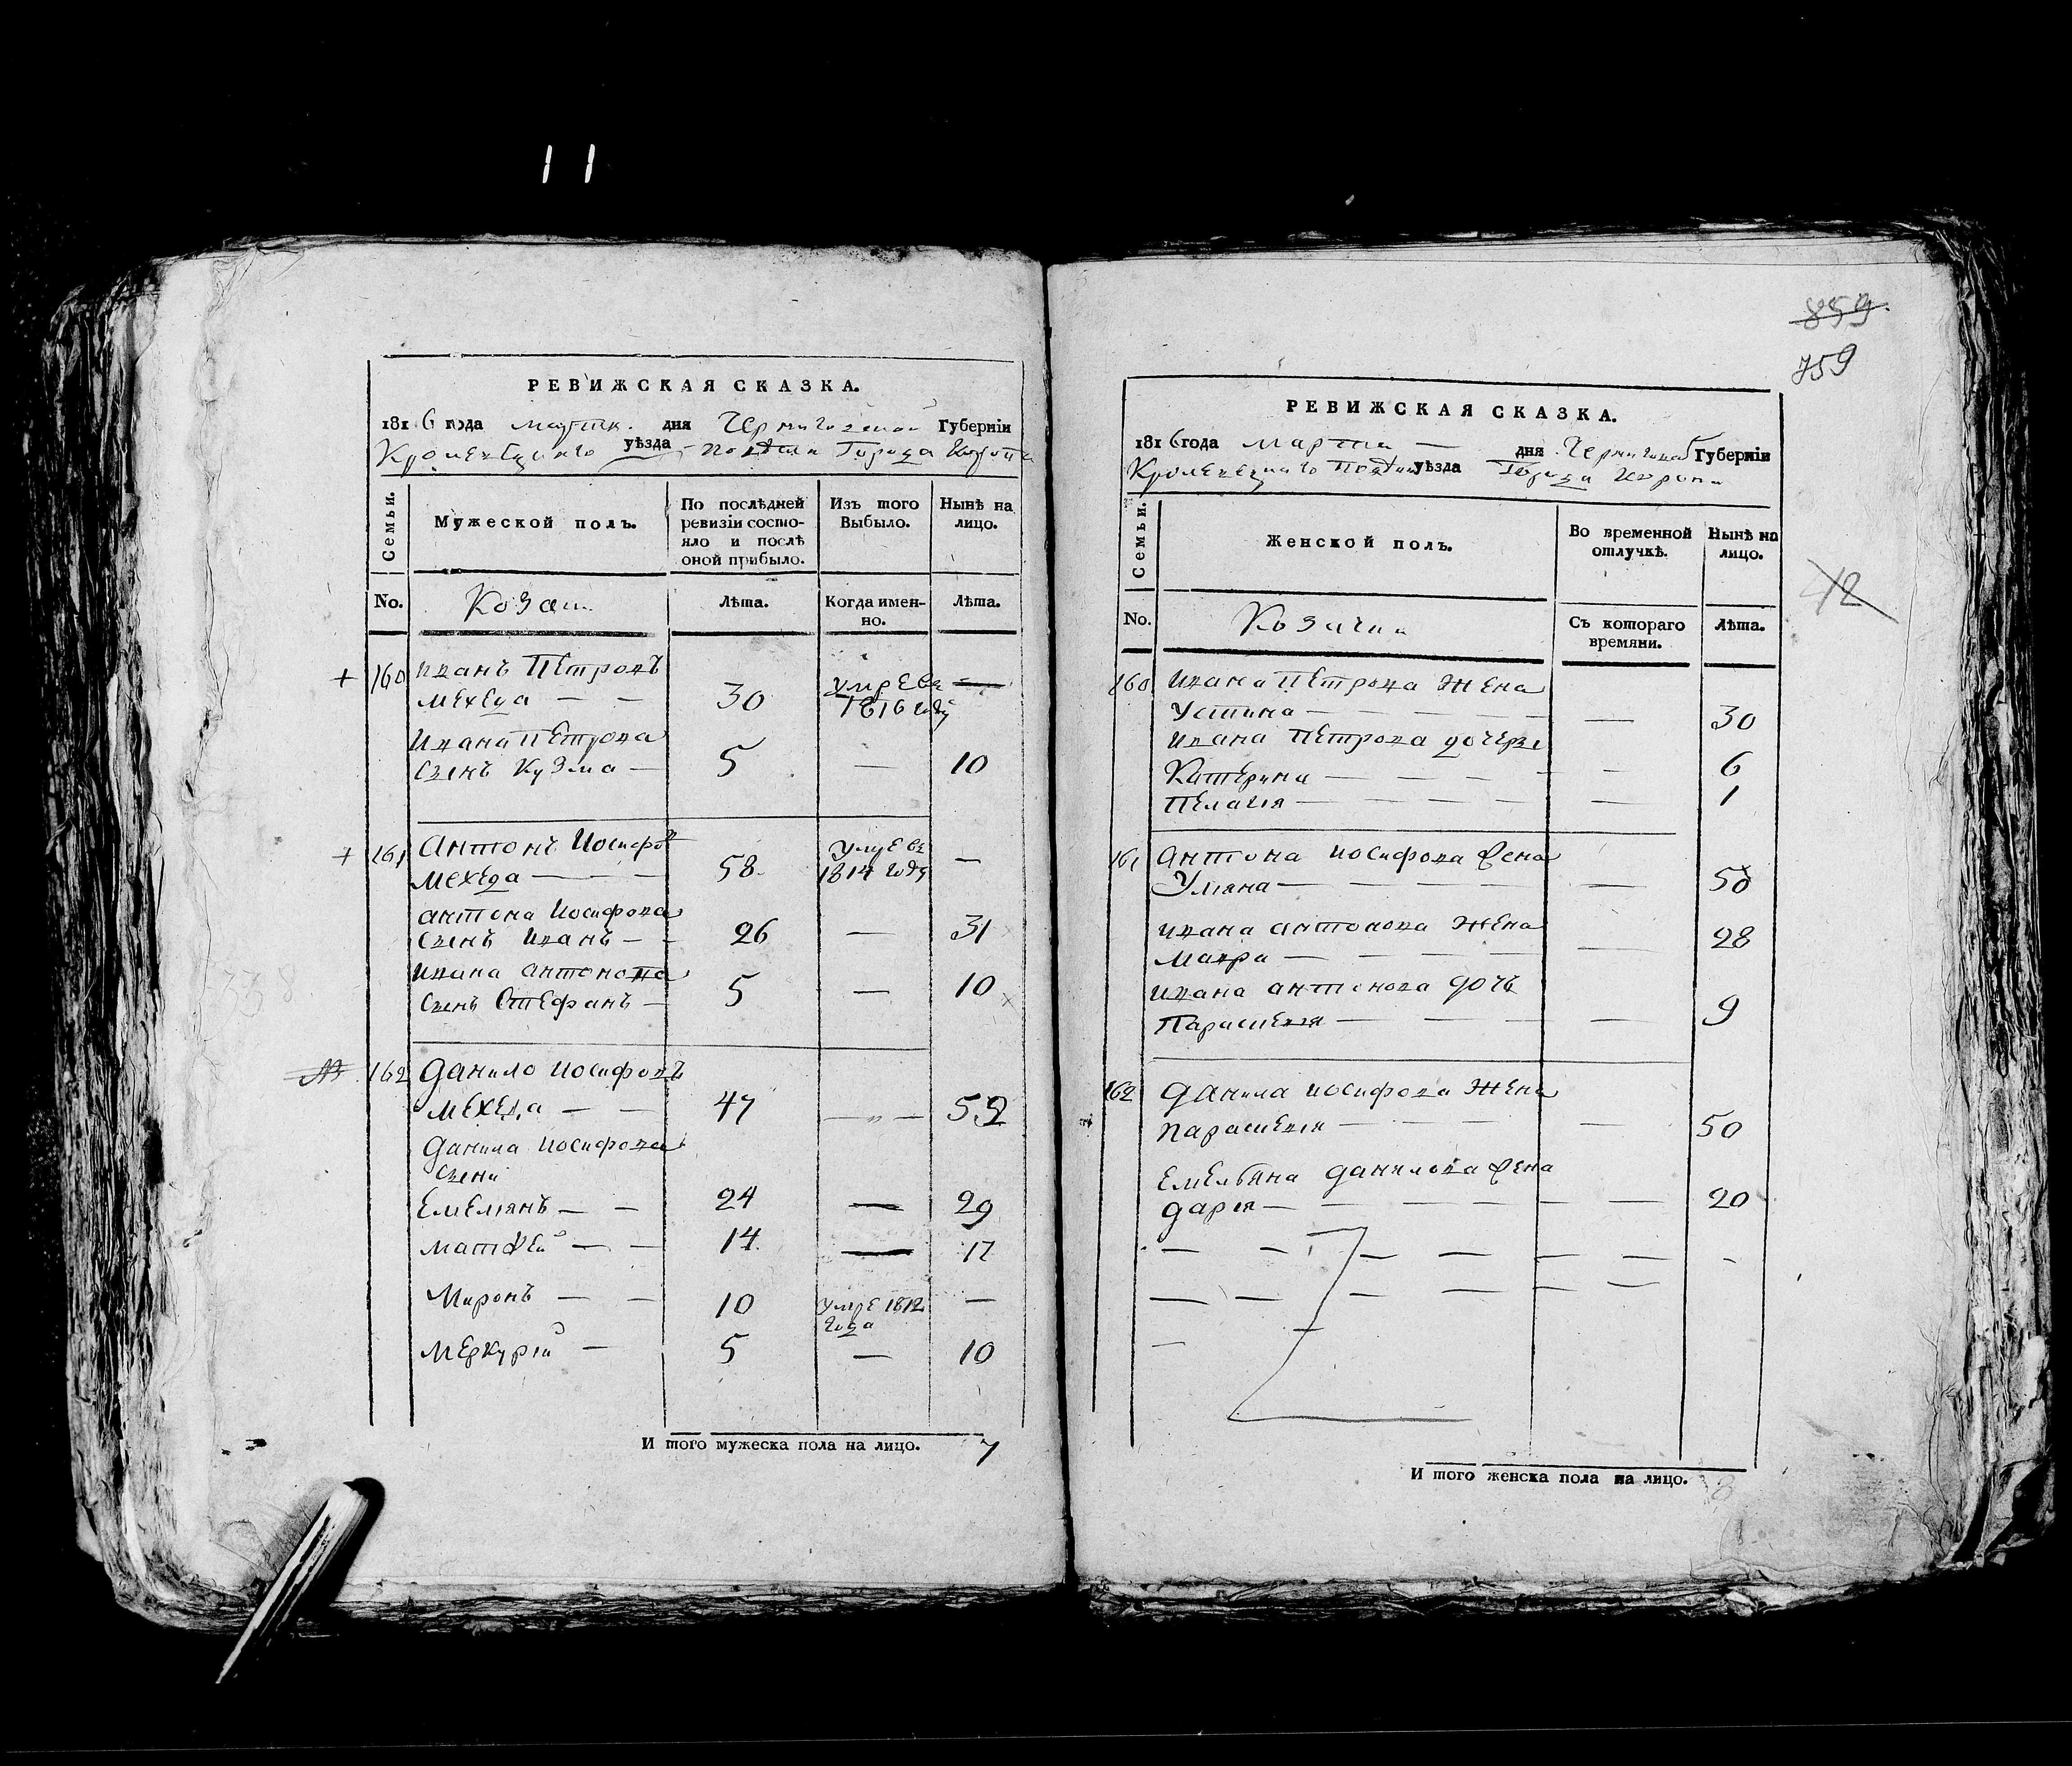 11
РЕВИЖСКАЯ СКАЗКА.
1816 года марта дня Черниговской Губернїи
Кролевецкаго уѣзда Повѣта Города Коропа
Семьи.
Мужеской полъ.
По послѣдней
ревизїи состо-
яло и послѣ
оной прибыло.
Изъ того
Выбыло.
Нынѣ на
лицо.
No.
Козаки
Лѣта.
Когда имен-
но.
Лѣта.
+ 160 Иванъ Петровъ
Мехеда — — 30 умре въ 1816 году —
Ивана Петрова
сынъ Кузма — 5 — 10
+ 161 Антонъ Иосифов
Мехеда — — 58 умре въ 1814 году —
Антона Иосифова
сынъ Иванъ — — 26 — 31
Ивана Антонова
сынъ Стефанъ — 5 — 10
162 Данило Иосифовъ
Мехеда — — 47 — „ — 52
Данила Иосифова
сыни
Емелїянъ — — 24 — 29
Матфей — — 14 — 17
Миронъ — — 10 умре 1812 года —
Меркурїй — 5 — 10
И того мужеска пола на лицо. 7
859
759
РЕВИЖСКАЯ СКАЗКА.
1816 года марта — дня Чернигов Губернїи
Кролевецкаго Повѣта уѣзда Города Коропа
Семьи.
Женской полъ.
Во временной
отлучкѣ.
Нынѣ на
лицо.
42
No.
Козачки
Съ котораго
времяни.
Лѣта.
160 Ивана Петрова жена
Устина — — 30
Ивана Петрова дочери
Катерина — — 6
Пелагїя — — 1
161 Антона Иосифова жена
Улїяна — — 50
Ивана Антонова жена
Мавра — — 28
Ивана Антонова дочь
Параскевїя — — 9
162 Данила Иосифова жена
Параскевїя — — 50
Емельяна Данилова жена
Дарїя — — 20
И того женска пола на лицо. 8